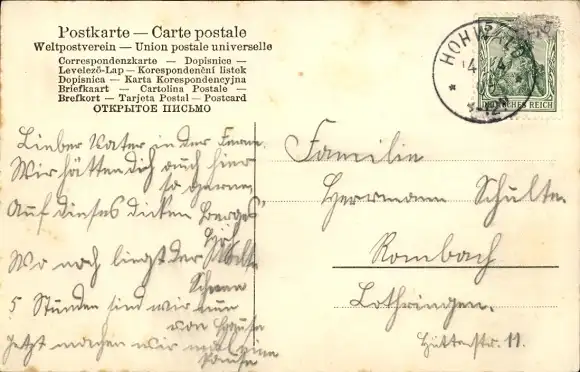 Postkarte — Carte postale
Weltpostverein — Union postale universelle
Correspondenzkarte — Dopisnice —
Levelező-Lap — Korespondenční listek
Dopisnica — Karta Korespondencyjna
Briefkaart — Cartolina Postale —
Brefkort — Tarjeta Postal — Postcard
ОТКРЫТОЕ ПИСЬМО
DEUTSCHES REICH
Lieber Vater in der Ferne.
Wir hätten dich auch hier
so gerne,
Auf dieses dicken Berges
Höh
Wo noch liegt der
Schnee
5 Stunden sind wir nun
von Hause
Jetzt machen wir mal eine
Pause
Familie
Herrmann Schulte.
Rombach
Lothringen.
Hüttenstr. 11.